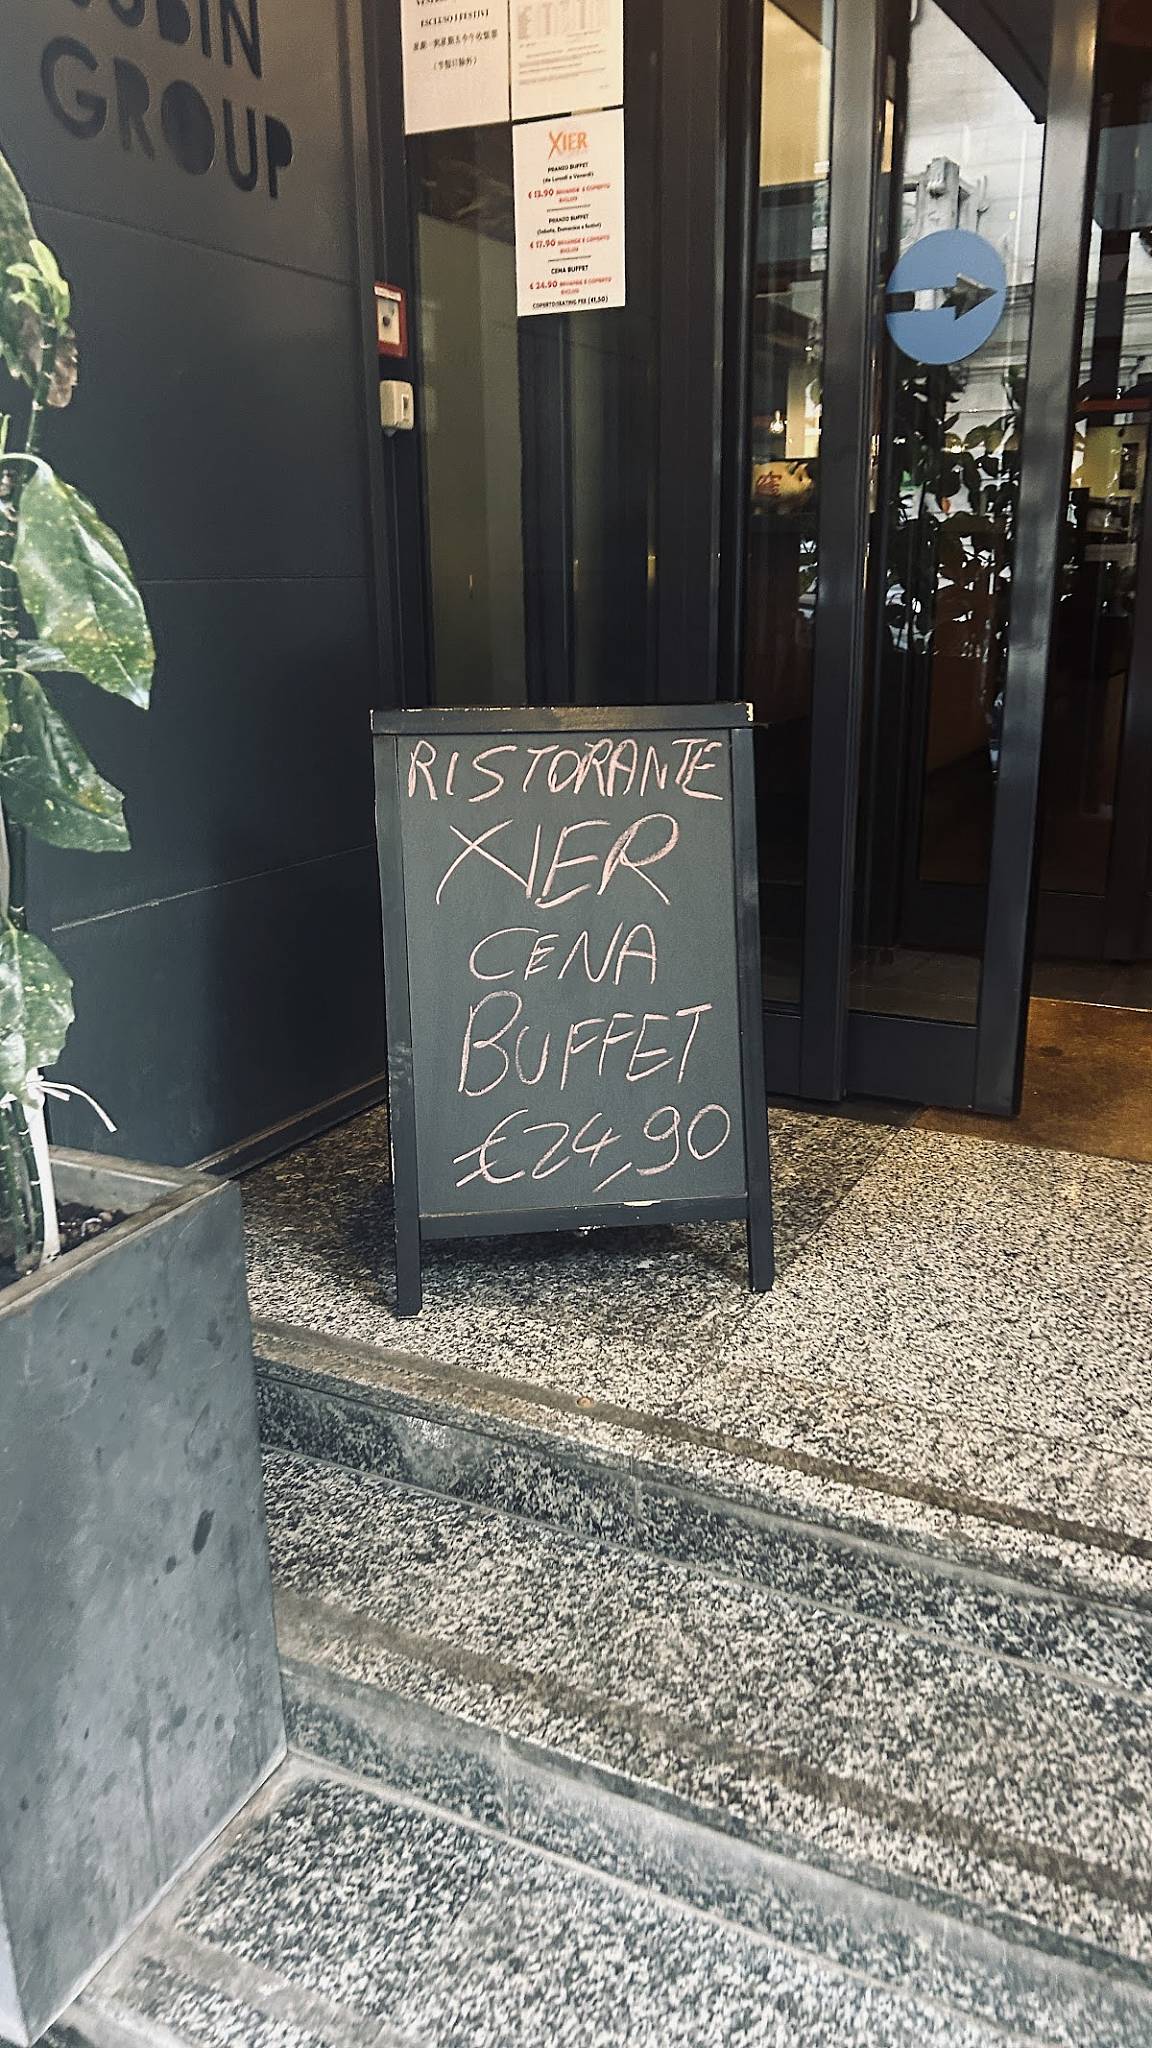 UBIN
GROUP
ESCLUSO I FESTIVI
XIER
PRANZO BUFFET
(da Lunedì a Venerdì)
€ 13.90 BEVANDE E COPERTO
ESCLUSI
PRANZO BUFFET
(Sabato, Domenica e festivi)
€ 17.90 BEVANDE E COPERTO
ESCLUSI
CENA BUFFET
€ 24.90 BEVANDE E COPERTO
ESCLUSI
COPERTO/SEATING FEE (€1,50)
RISTORANTE
XIER
CENA
BUFFET
€24,90